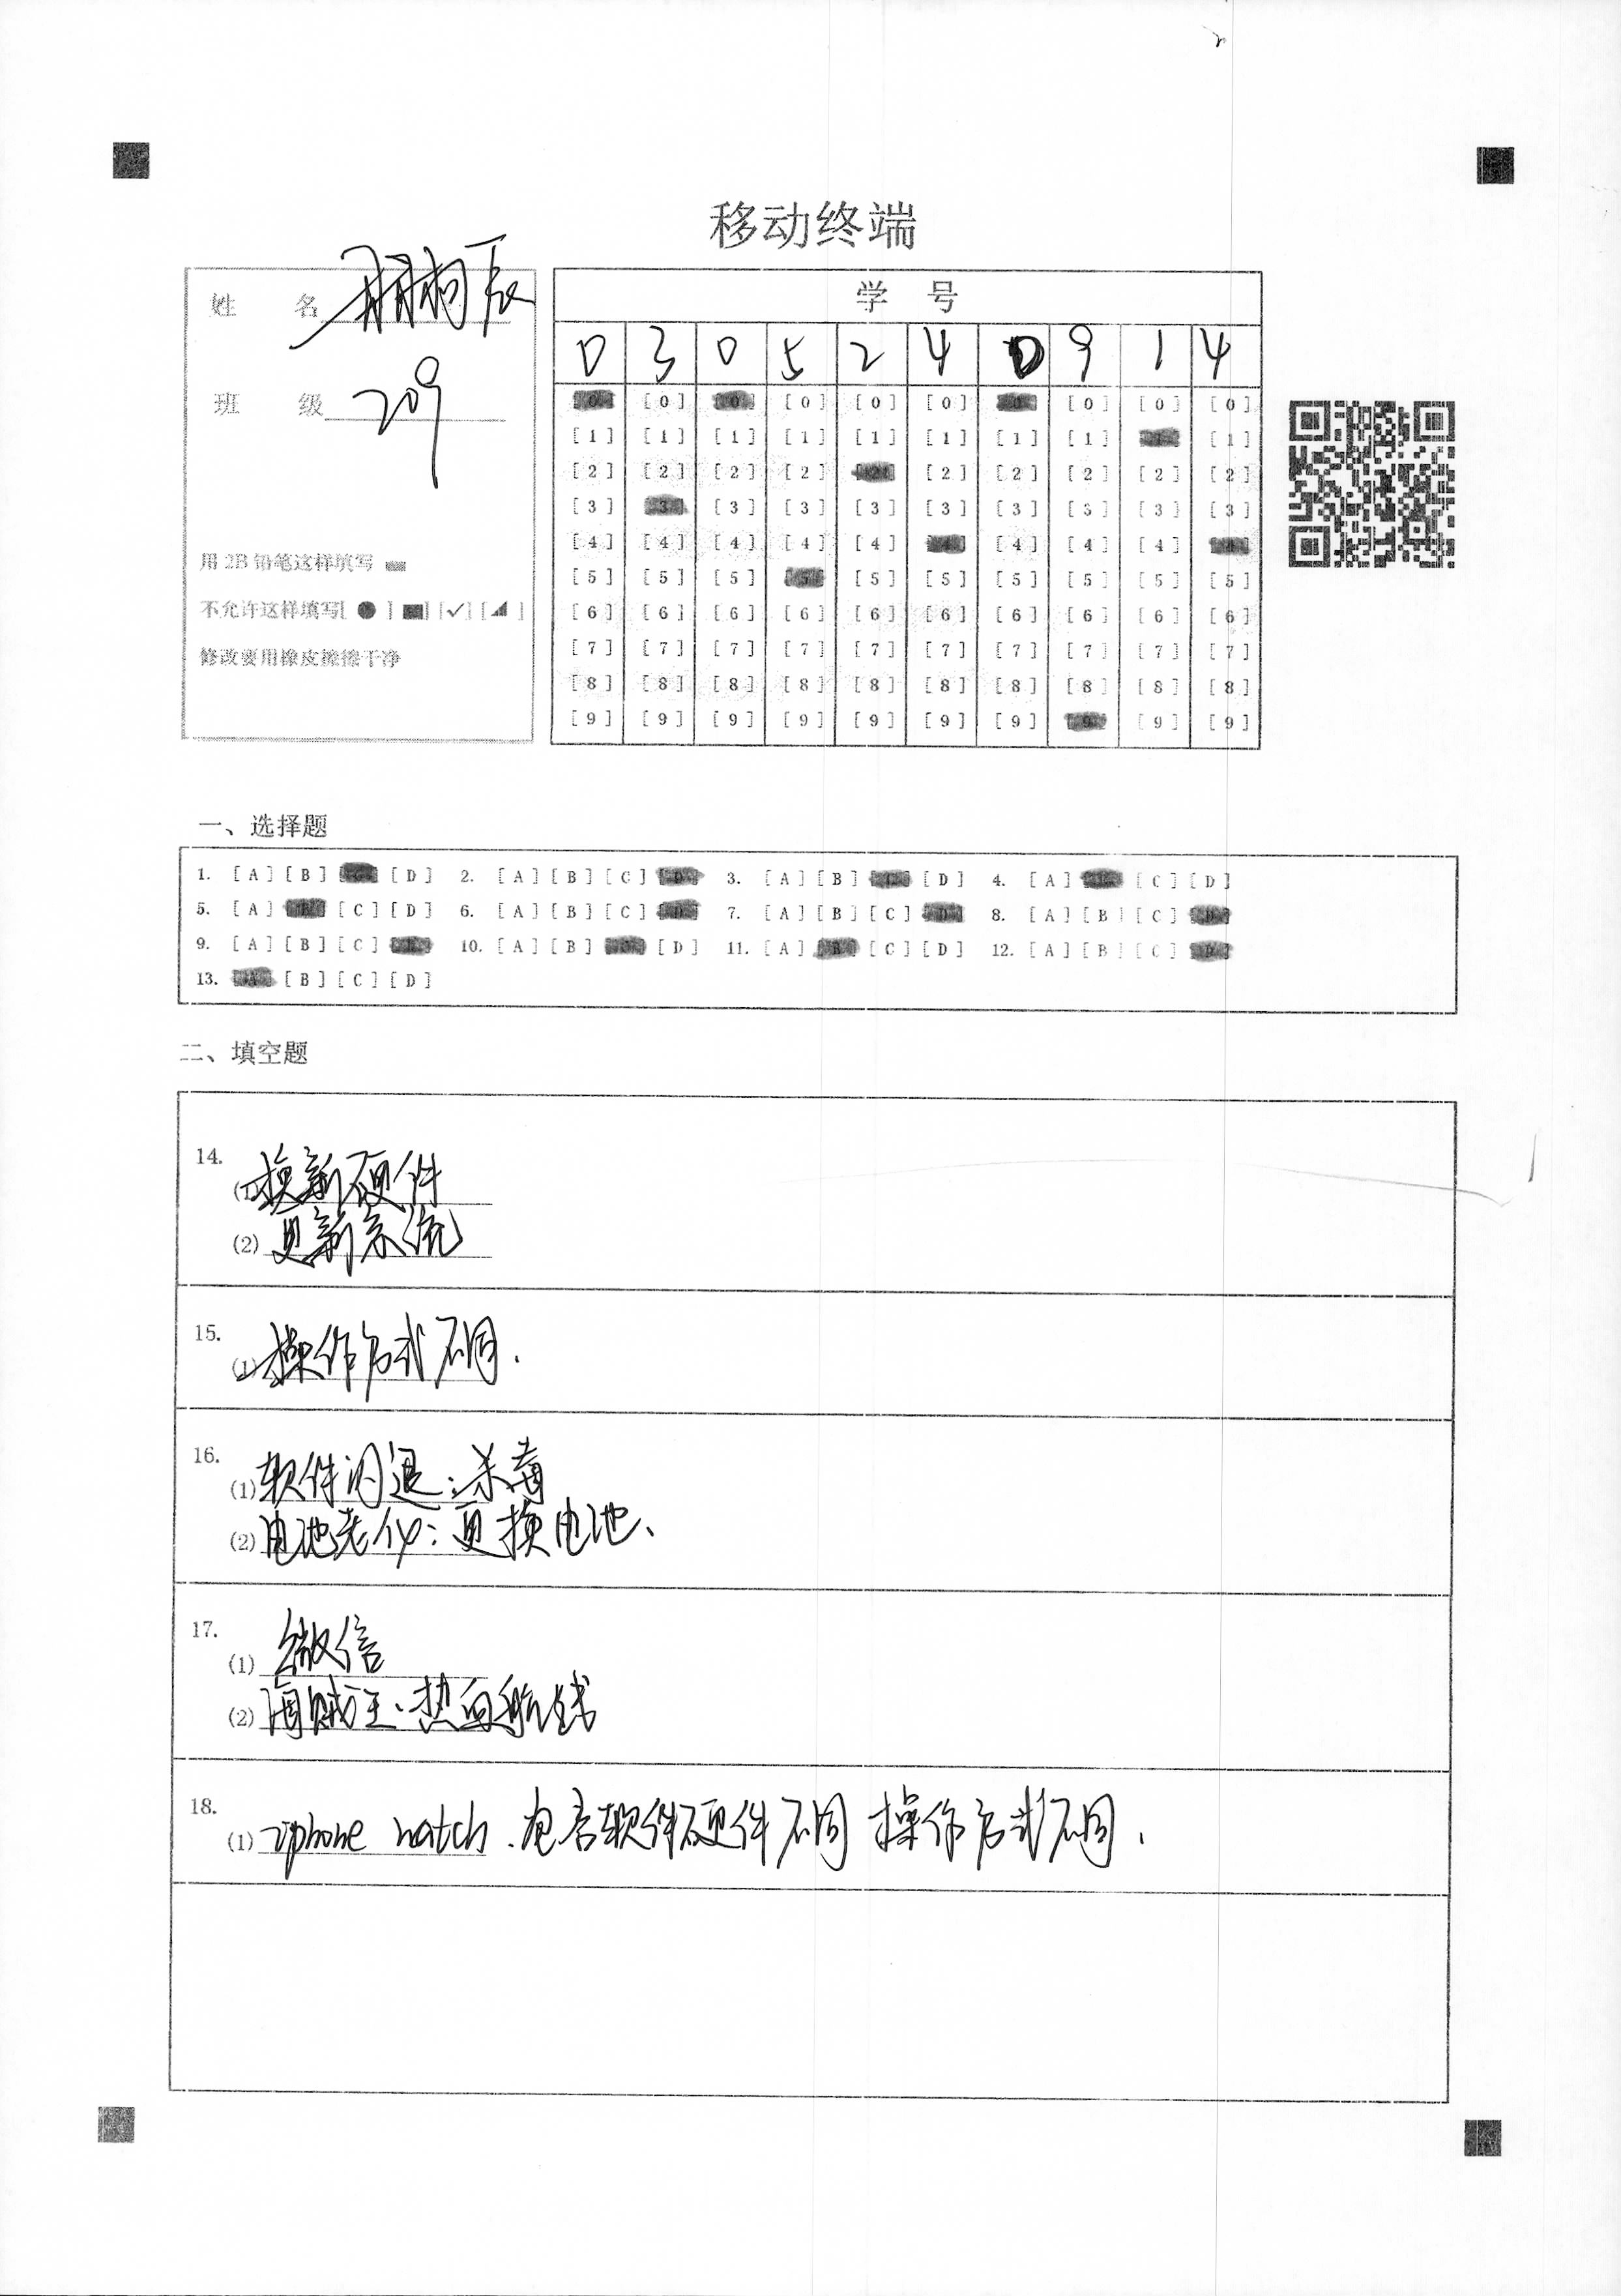 移动终端
姓 名
班 级 209
用 2B 铅笔这样填写
不允许这样填写[ ● ] [■] [✓] [◢ ]
修改要用橡皮擦擦干净
学 号
0 3 0 5 2 4 0 9 1 4
[0] [0] [0] [0] [0] [0] [0] [0] [0] [0]
[1] [1] [1] [1] [1] [1] [1] [1] [1] [1]
[2] [2] [2] [2] [2] [2] [2] [2] [2] [2]
[3] [3] [3] [3] [3] [3] [3] [3] [3] [3]
[4] [4] [4] [4] [4] [4] [4] [4] [4] [4]
[5] [5] [5] [5] [5] [5] [5] [5] [5] [5]
[6] [6] [6] [6] [6] [6] [6] [6] [6] [6]
[7] [7] [7] [7] [7] [7] [7] [7] [7] [7]
[8] [8] [8] [8] [8] [8] [8] [8] [8] [8]
[9] [9] [9] [9] [9] [9] [9] [9] [9] [9]
一、选择题
1. [A] [B] [C] [D] 2. [A] [B] [C] [D] 3. [A] [B] [C] [D] 4. [A] [B] [C] [D]
5. [A] [B] [C] [D] 6. [A] [B] [C] [D] 7. [A] [B] [C] [D] 8. [A] [B] [C] [D]
9. [A] [B] [C] [D] 10. [A] [B] [C] [D] 11. [A] [B] [C] [D] 12. [A] [B] [C] [D]
13. [A] [B] [C] [D]
二、填空题
14.
(1) 换新硬件
(2) 更新系统
15.
(1) 操作方式不同.
16.
(1) 软件闪退:杀毒
(2) 电池老化:更换电池、
17.
(1) 微信
(2) 海贼王·热血航线
18.
(1) iphone watch . 包含软件硬件不同 操作方式不同.